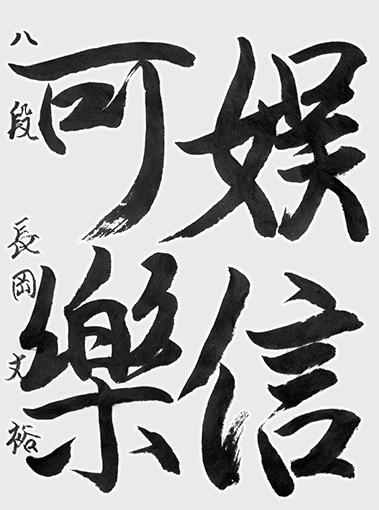 娯信
可樂
八段 長岡丈裕